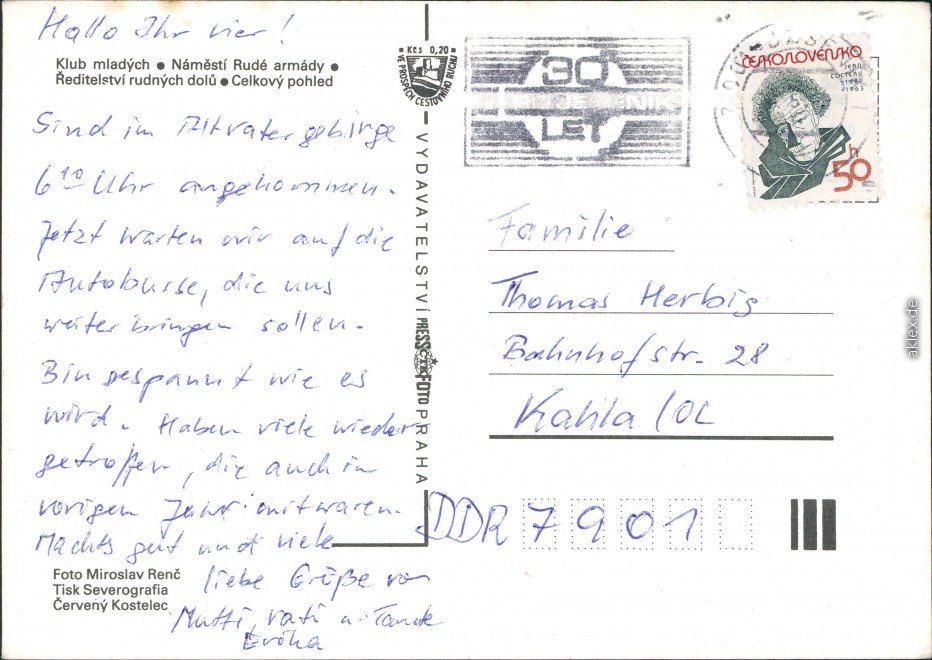 Hallo Ihr vier!
Klub mladých ● Náměstí Rudé armády ●
Ředitelství rudných dolů ● Celkový pohled
Sind im Altvatergebirge
6¹⁰ Uhr angekommen.
Jetzt warten wir auf die
Autobusse, die uns
weiterbringen sollen.
Bin gespannt wie es
wird. Haben viele wieder
getroffen, die auch im
vorigen Jahr mitwaren.
Machts gut und viele
liebe Grüße von
Mutti, Vati u. Tante
Erika
Foto Miroslav Renč
Tisk Severografia
Červený Kostelec
Kčs 0,20
VE PROSPĚCH CESTOVNÍHO RUCHU
VYDAVATELSTVÍ PRESSFOTO PRAHA
ČTK
30
LET
ČESKOSLOVENSKO
JEAN
COCTEAU
1889
1963
50 h
Familie
Thomas Herbig
Bahnhofstr. 28
Kahla /OL
DDR 7901
aklex.de